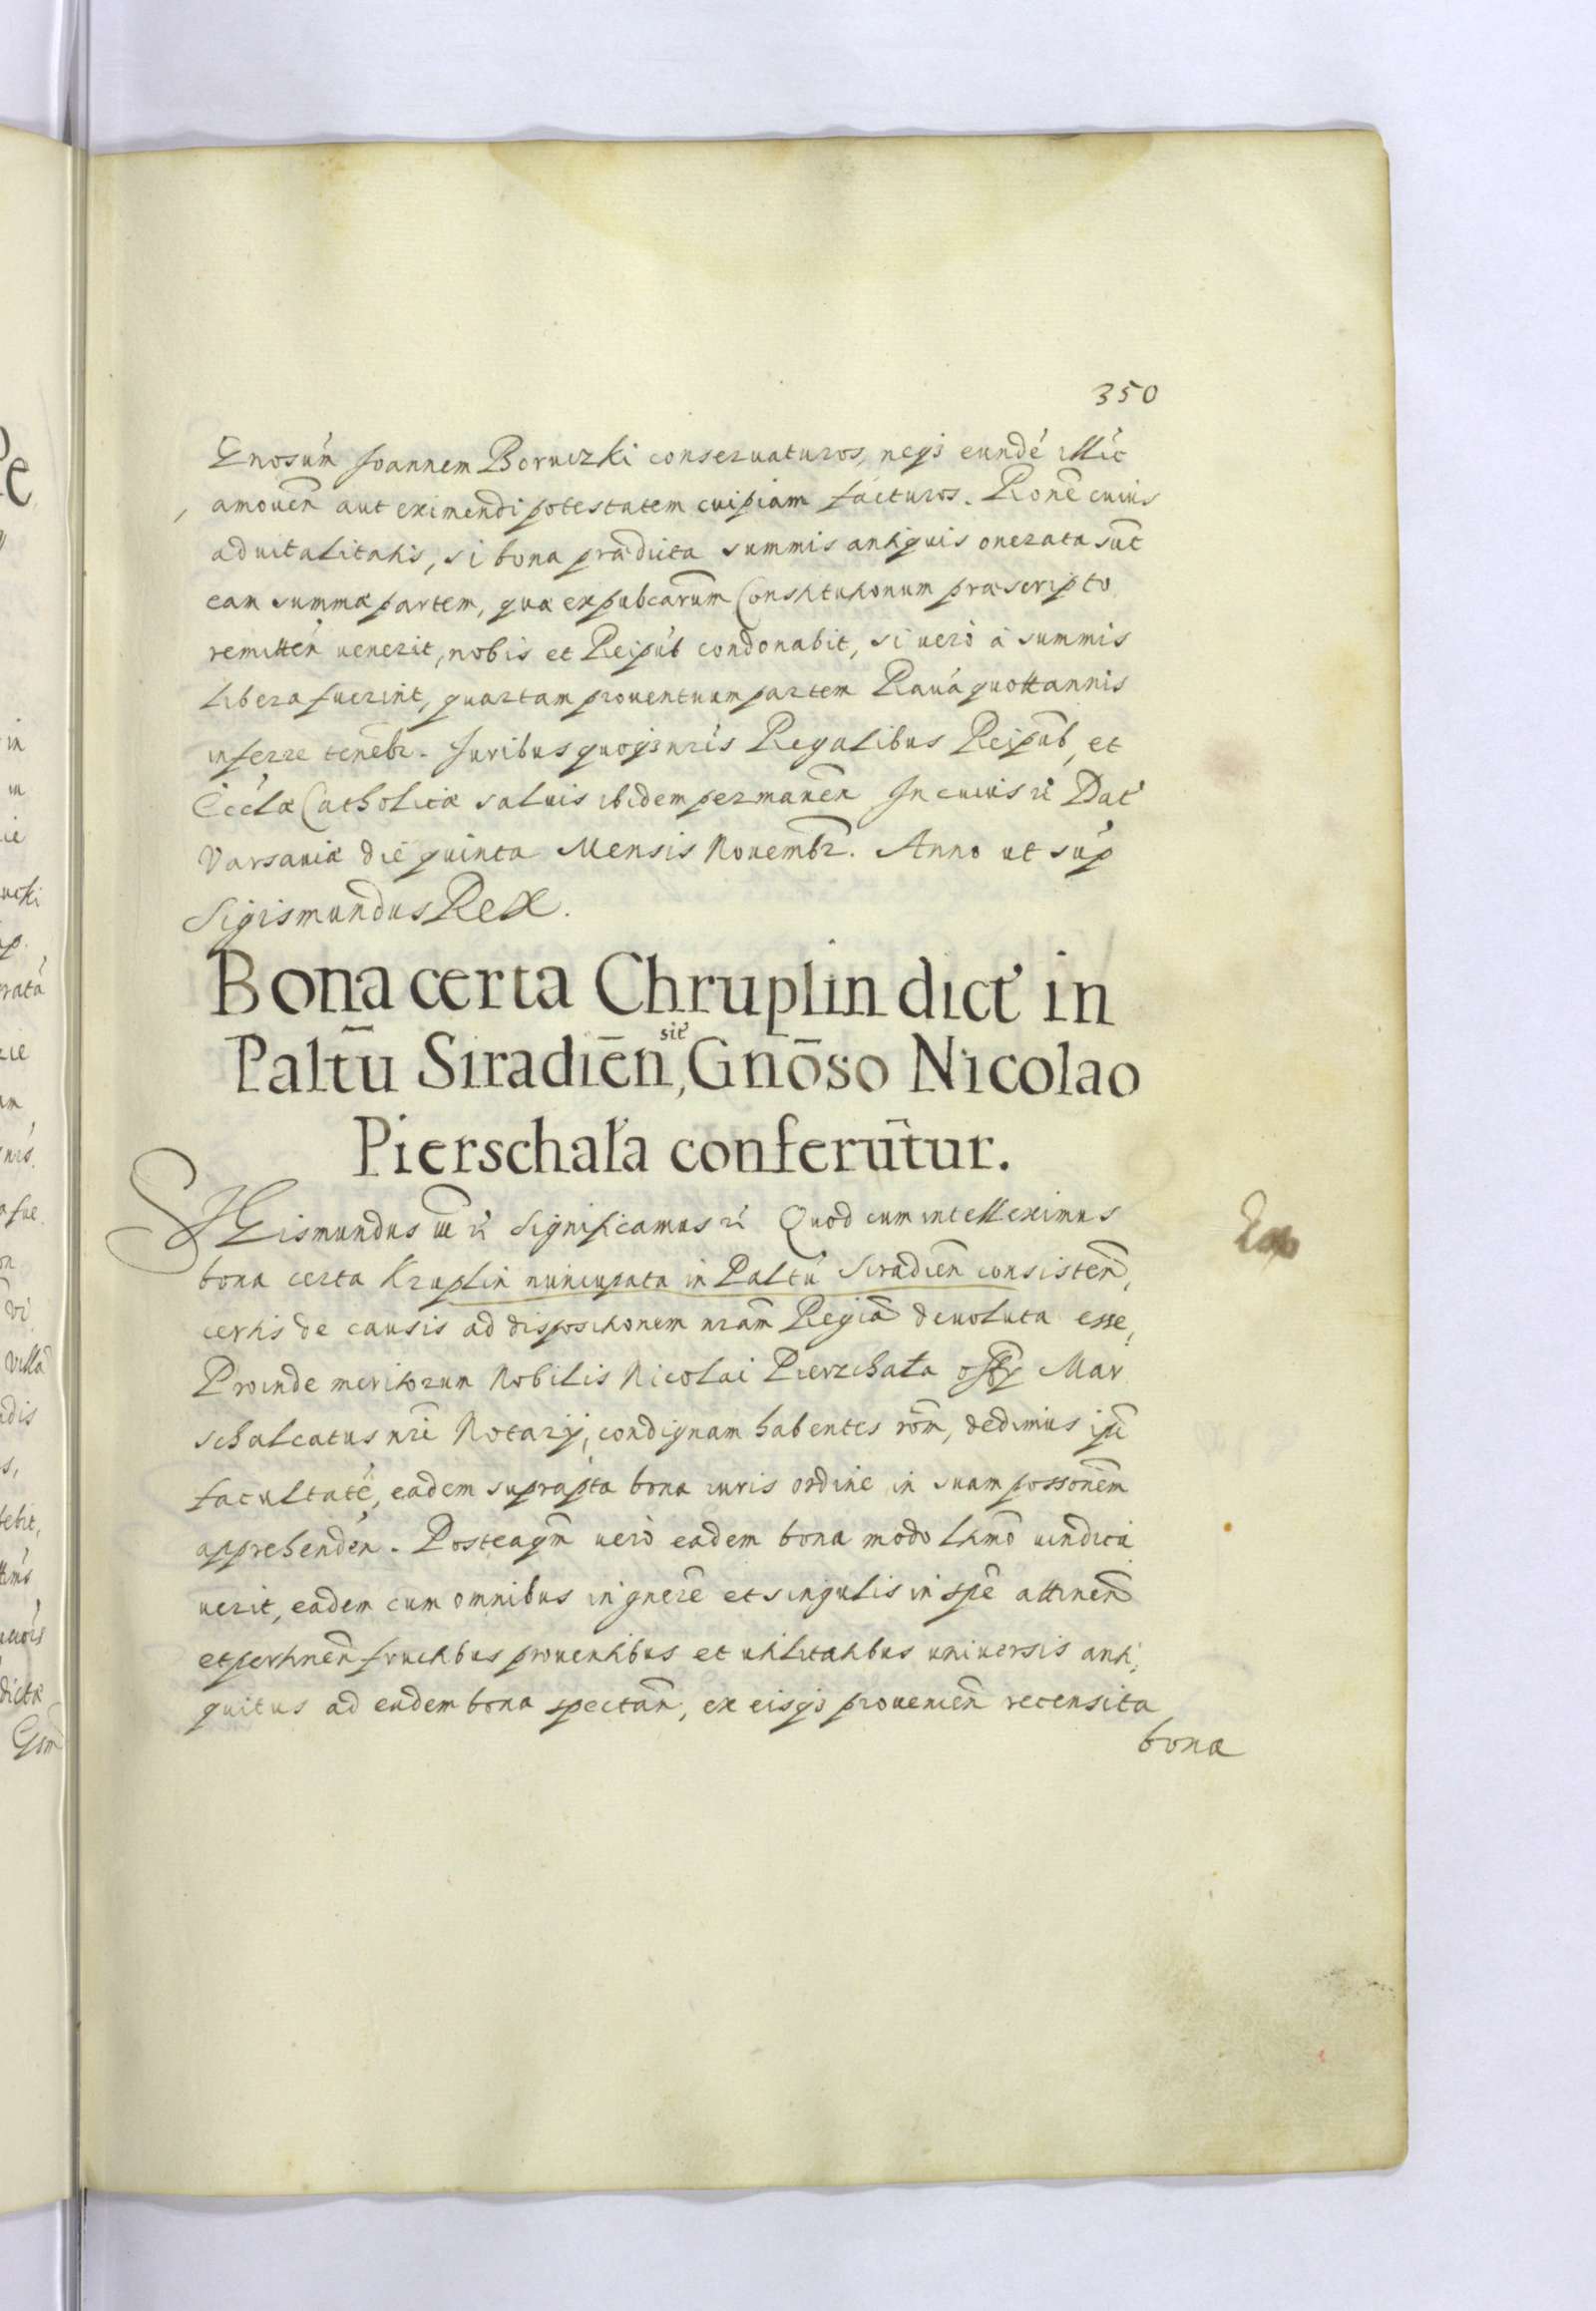 350
Gnosum Joannem Boruczki conseruaturos, neq3 eundé illic
amouen̄ aut eximendi potestatem cuipiam facturos. Rōne cuius
aduitalitatis, si bona prædicta summis antiquis onerata sūt
eam summæ partem, quæ ex pubcarum Constitutionum præscripto
remitteń uenerit, nobis et Reipub condonabit, si uerò à summis
libera fuerint, quartam prouentuum partem Rauá quottannis
inferre tenebr. Juribus quoq3 nr̄is Regalibus Reipub, et
Eccl'æ Catholicæ saluis ibidem permanēn In cuius rĕ Dat'
Varsauiæ die quinta Mensis Nouembr. Anno ut sup
Sigismundus Rex.
Bona certa Chruplin dict' in
Palt̄u Siradiēn, sit' Gnōso Nicolao
Pierschała conferūtur.
SIGismundus III ĕ Significamus ĕ Quod cum intelleximus
bona certa Kruplin nuncupata in Paltu Siradien̄ consisten̄,
certis de causis ad dispositionem nr̄am Regiā deuoluta esse,
Proinde meritorum Nobilis Nicolai Pierzchała Mar
schalcatus nr̄i Notarij, condignam habentes rōm, dedimus ip̄i
facultatē, eadem suprap̄ta bona iuris ordine in suam possonēm
apprehenden̄. Posteaqm̄ uerò eadem bona modo ltimō uindica
uerit, eadem cum omnibus in gnere et singulis in spē attinen̄
et pertinen̄ fructibus prouentibus et utilitatibus uniuersis anti,
quitus ad eadem bona spectan̄, ex eisq3 prouenien̄ recensita
bona